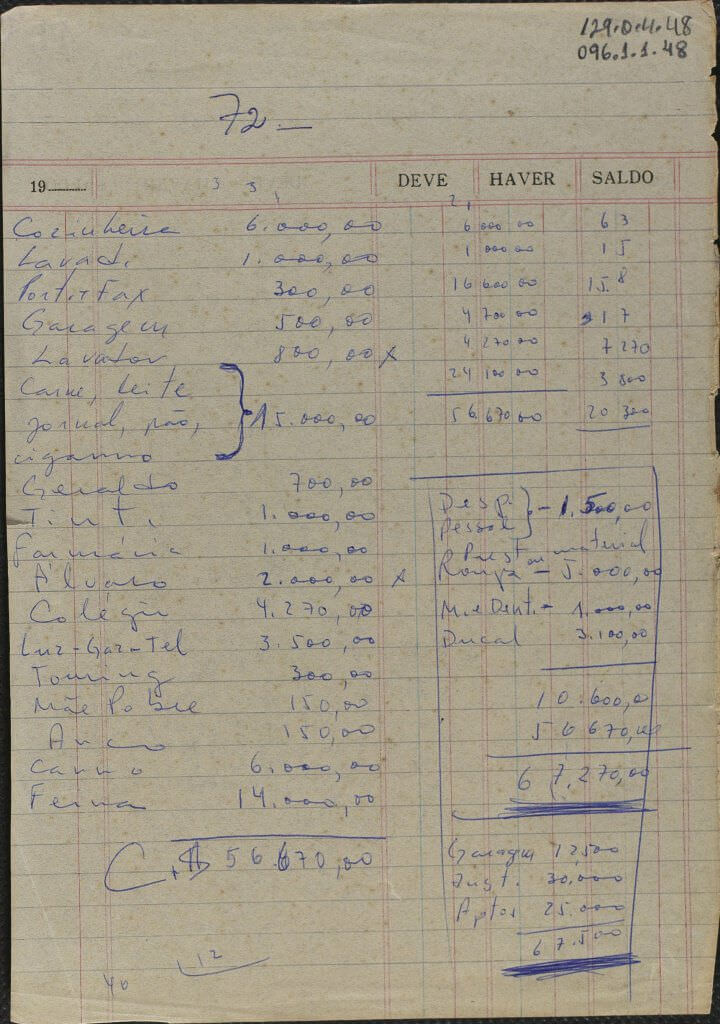 129.0.4.48
096.1.1.48
72 —
19 DEVE HAVER SALDO
3 3
Cozinheira 6.000,00
Lavad. 1.000,00
Port. + Fax 300,00
Garagem 500,00
Lavador 800,00 x
Carne, leite
jornal, pão, } 15.000,00
cigarro
Geraldo 700,00
Tint. 1.000,00
Farmácia 1.000,00
Álvaro 2.000,00 x
Colégio 4.270,00
Luz-Gaz-Tel 3.500,00
Touring 300,00
Mãe Pobre 150,00
150,00
Carro 6.000,00
Feira 14.000,00
Cr$ 56.670,00
12
40
21
6 000 00 63
1 000 00 15
16 600 00 15.8
4 700 00 17
4 270 00 7 270
24 100 00 3 800
56 670 00 20 300
Desp. } - 1.500,00
Pessoal
Prest ou material
Roupa - 5.000,00
M. e Dent. - 1.000,00
Ducal 3.100,00
10.600,0
56 670,00
67.270,00
Garagem 12,500
30,000
Aptos 25.000
67.500